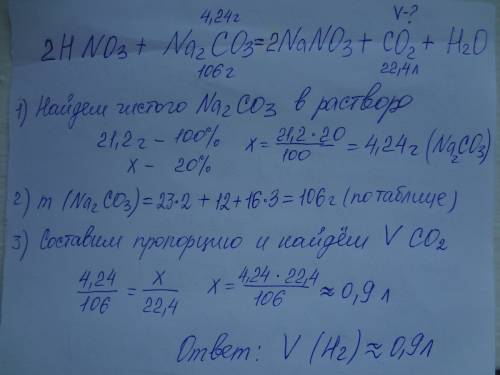 4,24г V-?
2HNO3 + Na2CO3=2NaNO3 + CO2 + H2O
106г 22,4л
1) Найдем чистого Na2CO3 в растворе
21,2г – 100% x = 21,2·20/100 = 4,24г (Na2CO3)
x – 20%
2) m (Na2CO3) = 23·2 + 12 + 16·3 = 106г (по таблице)
3) Составим пропорцию и найдём V CO2
4,24/106 = x/22,4 x = 4,24·22,4/106 ≈ 0,9 л
Ответ: V (H2) ≈ 0,9л